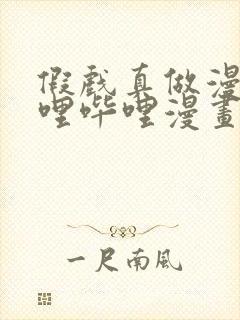 假戲真做漫
哩哔哩漫畫
一尺南風